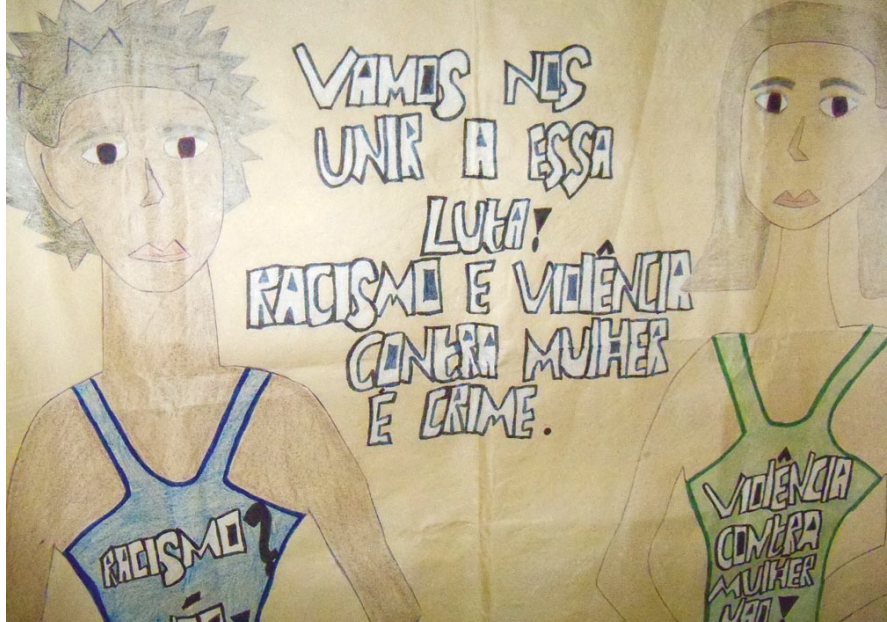 VAMOS NOS
UNIR A ESSA
LUTA!
RACISMO E VIOLÊNCIA
CONTRA MULHER
É CRIME.
RACISMO?
NÃO!
VIOLÊNCIA
CONTRA
MULHER
NÃO!